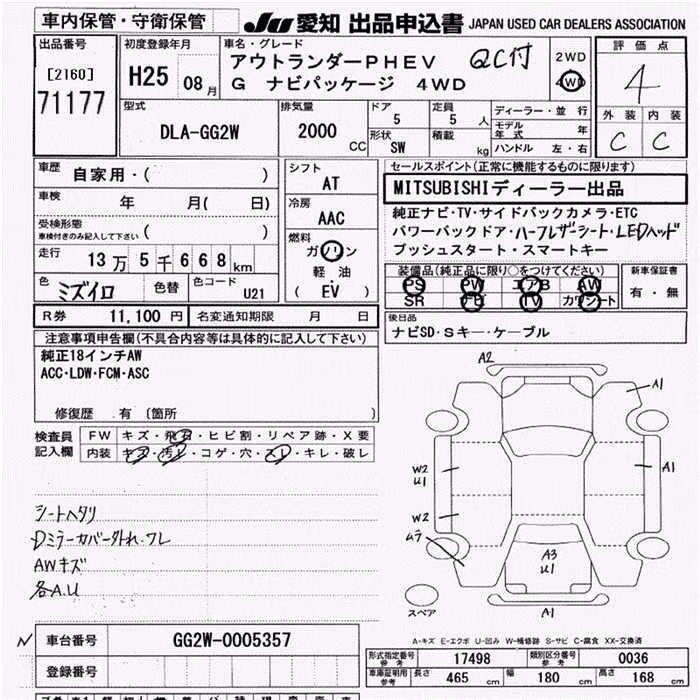 車内保管・守衛保管
JU 愛知 出品申込書 JAPAN USED CAR DEALERS ASSOCIATION
出品番号
[2160]
71177
初度登録年月
H25 08月
車名・グレード
アウトランダーPHEV QC付
G ナビパッケージ 4WD
2WD
4WD
評価点
4
外装 内装
C C
型式
DLA-GG2W
排気量
2000 CC
ドア
5
定員
5 人
形状
SW
積載
kg
ディーラー・並行
モデル年式 年
ハンドル 左・右
車歴
自家用・( )
車検 年 月( 日)
受検形態
車検付きのみ記入して下さい ( )
走行 13万5千668km
色 ミズイロ 色替 色コード U21
シフト
AT
冷房
AAC
燃料
ガソリン
軽油
( EV )
セールスポイント(正常に機能するものに限ります)
MITSUBISHIディーラー出品
純正ナビ・TV・サイドバックカメラ・ETC
パワーバックドア・ハーフレザーシート・LEDヘッド
プッシュスタート・スマートキー
装備品(純正品に限り○をつけてください)
PS PW エアB AW
SR ナビ TV カワシート
新車保証書
有・無
R券 11,100円 名変通知期限 月 日
後日品
ナビSD・Sキー・ケーブル
注意事項申告欄(不具合内容等は具体的に記入して下さい)
純正18インチAW
ACC・LDW・FCM・ASC
修復歴 有 〔箇所 〕
検査員記入欄
FW キズ・飛石・ヒビ割・リペア跡・X要
内装 キズ・汚レ・コゲ・穴・スレ・キレ・破レ
シートヘタリ
Dミラーカバー外れ・ワレ
AWキズ
各A.U
A2
A1
W2
U1
A1
W2
ムラ
A3
U1
スペア
A1
A-キズ E-エクボ U-凹み W-補修跡 S-サビ C-腐食 XX-交換済
N 車台番号 GG2W-0005357
登録番号
形式指定番号 参考 17498 類別区分番号 参考 0036
車庫証明用 参考 長さ 465 cm 幅 180 cm 高さ 168 cm